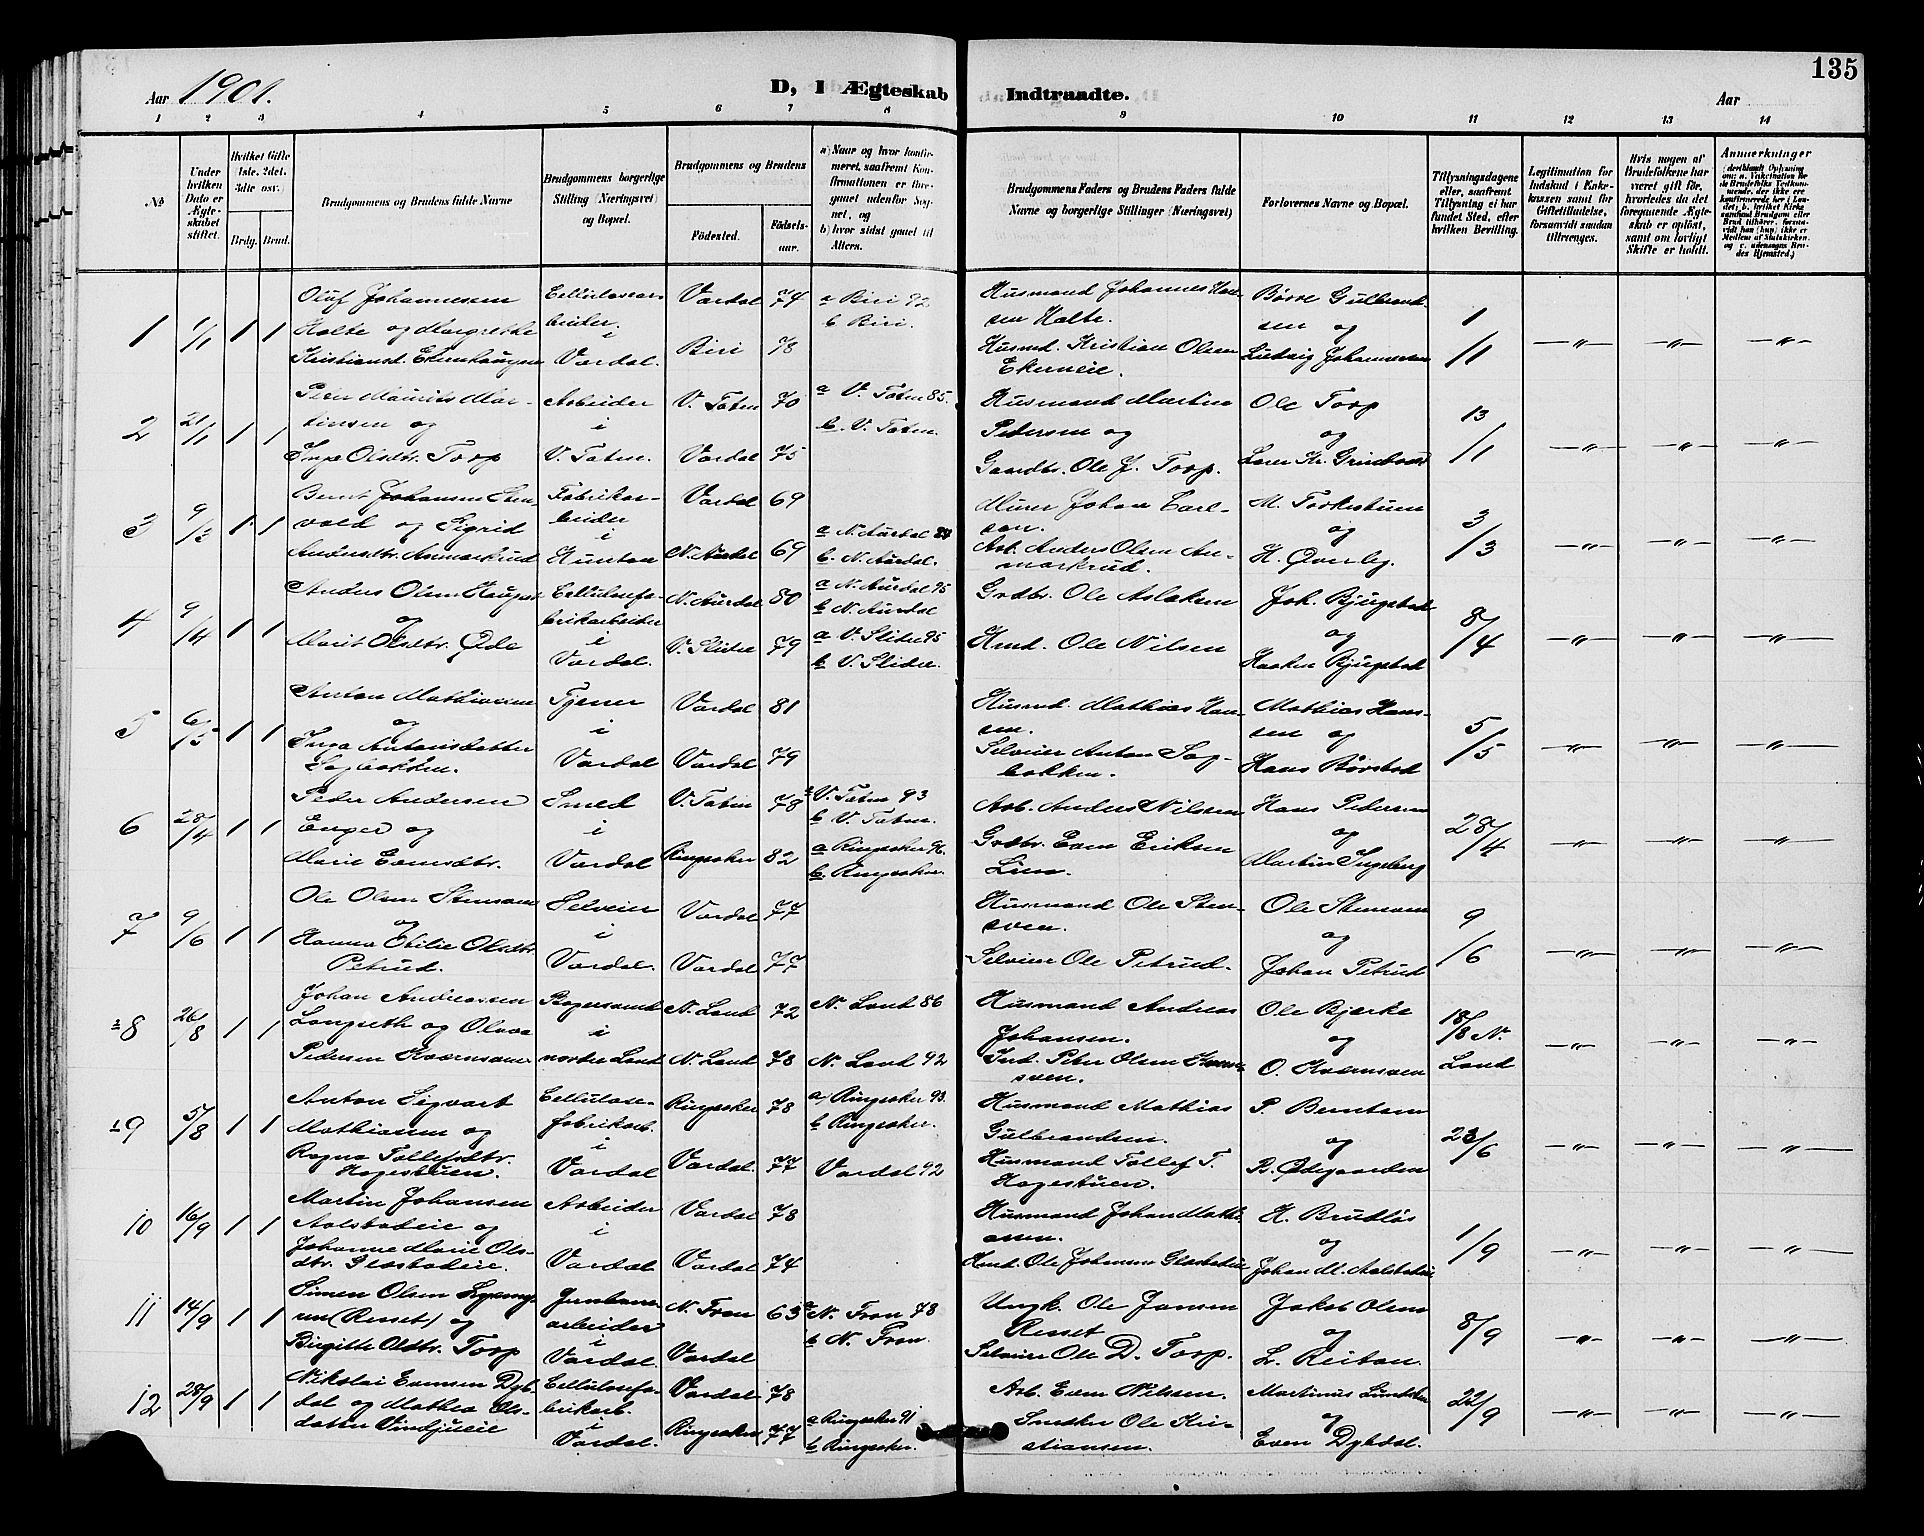 135
Aar 1901.
D, I Ægteskab Indtraadte.
Aar
1 2 3 4 5 6 7 8 9 10 11 12 13 14
No
Under hvilken Dato er Ægteskabet stiftet.
Hvilket Gifte 1ste. 2det. 3die osv.)
Brdg. Brud.
Brudgommens og Brudens fulde Navne
Brudgommens borgerlige Stilling (Næringsvei) og Bopæl.
Brudgommens og Brudens
Födested.
Födselsaar.
a) Naar og hvor konfirmeret, saafremt Konfirmationen er foregaaet udenfor Sognet, og
b) hvor sidst gaaet til Alters.
Brudgommens Faders og Brudens Faders fulde Navne og borgerlige Stillinger (Næringsvei)
Forlovernes Navne og Bopæl.
Tillysningsdagene eller, saafremt Tillysning ei har fundet Sted, efter hvilken Bevilling.
Legitimation for Indskud i Enkekassen samt for Giftetilladelse, forsaavidt saadan tiltrænges.
Hvis nogen af Brudefolkene har været gift för, hvorledes da det foregaaende Ægteskab er oplöst, samt om lovligt Skifte er holdt.
Anmærkninger
1 1/1 1 1 Oluf Johannessen Halte og Margrethe Kristiansd. Cellulosearbeider. i Vardal. Vardal 74 a Biri 92 b Biri. Biri 78 Husmand Johannes Hansen Halte. Husmd. Kristian Olsen Ekerneie. Børre Gulbrandsen og Ludvig Johannessen 1/1 —"— —"— —"—
2 21/1 1 1 Peter Mauritz Martinsen og Inga Olsdtr. Torp Arbeider i V. Toten. V. Toten 70 a V. Toten 85. b. V. Toten. Vardal 75 Husmand Martin Pedersen og Gaardbr. Ole J. Torp. Ole Torp og 13/1 —"— —"— —"—
3 9/3 1 1 Bernt Johansen og Sigrid Andersdtr. Anmarkrud Fabrikarbeider i Hunton Vardal 69 N. Aurdal 69 a N. Aurdal 84 b. N. Aurdal. Murer Johan Carlson. Arb. Anders Olsen Anmarkrud. M. Torkestuen og H. Øverby. 3/3 —"— —"— —"—
4 9/4 1 1 Anders Olsen og Marit Olsdtr. Øde Cellulosefabrikarbeider i Vardal. N. Aurdal 80 a N. Aurdal 95 b N. Aurdal V. Slidre 79 a V. Slidre 95 b V. Slidre. Grdbr. Ole Aslaksen Hmd. Ole Nilsen Joh. Bjugstad og Haaken Bjugstad 8/4 —"— —"— —"—
5 6/5 1 1 Anton Mathiassen og Inga Antonsdatter Sagbakken. Tjener i Vardal Vardal 81 Vardal 79 Husmd. Mathias Hansen. Selveier Anton Sagbakken. Mathias Hansen og Hans Børstad 5/5 —"— —"— —"—
6 28/4 1 1 Peder Andersen Enger og Marie Evensdtr. Smed i Vardal V. Toten 78 a V. Toten 93 b V. Toten. Ringsaker 82 a Ringsaker 96. b Ringsaker. Arb. Anders Nilsen Grdbr. Even Eriksen Lien. Hans Pedersen og Martin Ingeberg 28/4 —"— —"— —"—
7 9/6 1 1 Ole Olsen Stensven og Hanna Otilie Olsdtr. Petrud. Selveier i Vardal. Vardal 77 Vardal 77 Husmand Ole Stensven. Selveier Ole Petrud. Ole Stensven og Johan Petrud 9/6 —"— —"— —"—
8 26/8 1 1 Johan Andreassen Langseth og Olava Pedersen Kværnsveen i nordre Land N. Land 72 N. Land 86 N. Land 78 N. Land 92 Husmand Andreas Johansen. Ind. Peter Olsen Kværnsveen. Ole Bjerke og O. Kværnsveen 18/8 N. Land —"— —"— —"—
9 5/8 1 1 Anton Sigvart Mathiasen og Ragna Tollefsdtr. Hagestuen. Cellulosefabrikarb. i Vardal Ringsaker 78 a) Ringsaker 93. b Ringsaker. Vardal. 77 Vardal 92 Husmand Mathias Gulbrandsen. Husmand Tollef T. Hagestuen. P. Berntsen og B. Ødegaarden 23/6 —"— —"— —"—
10 16/9 1 1 Martin Johansen Aalstadeie og Johanne Marie Olsdtr. Glæstadeie. Arbeider i Vardal Vardal 78 Vardal 74 Husmand Johan Mathiasen. Hmd. Ole Johansen H. Brudlös og Johan M. 1/9 —"— —"— —"—
11 14/9 1 1 Simen Olsen (Resset) og Birgitte Olsdtr. Torp Jernbanearbeider i Vardal N. Fron 63 a N. Fron 78 b N. Fron. Vardal Ungk. Ole Jansen Resset Selveier Ole D. Torp. Jakob Olsen og L. Reitan. 8/9 —"— —"— —"—
12 28/9 1 1 Nikolai Evensen Dybdal og Mathea Olsdatter Vindjueie Cellulosefabrikarb. i Vardal. Vardal 78 Ringsaker 77 a Ringsaker 91 b Ringsaker. Arb. Even Nilsen. Snedker Ole Kristiansen. Martinus og Even Dybdal. 22/9 —"— —"— —"—